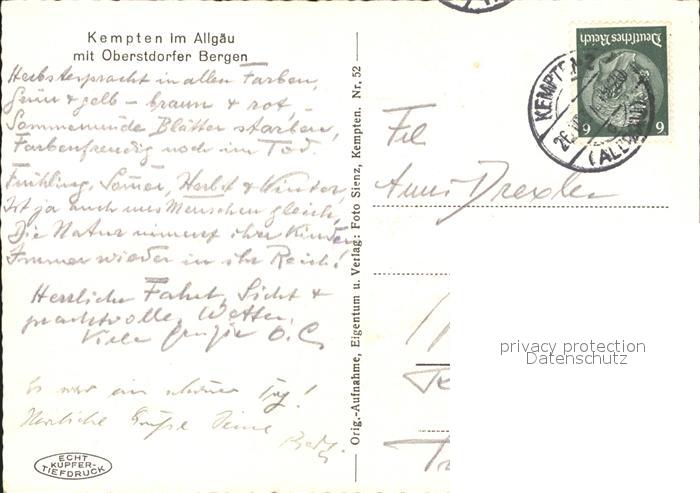 Kempten im Allgäu
mit Oberstdorfer Bergen
Herbstespracht in allen Farben,
Grün & gelb – braun & rot,
Sommermüde Blätter starben,
Farbenfreudig noch im Tod.
Frühling, Somer, Herbst & Winter,
Ist ja auch uns Menschen gleich,
Die Natur nimmt ihre Kinder
Immer wieder in ihr Reich!
Herrliche Fahrt, Sicht &
prachtvolles Wetter.
Viele Grüsse
Es war ein schöner Tag!
Herzliche Grüße Deine
ECHT
KUPFER-
TIEFDRUCK
Orig.-Aufnahme, Eigentum u. Verlag: Foto Sienz, Kempten. Nr. 52
Deutsches Reich
6 6
KEMPTEN
(ALLGÄU)
Frl
Drexler
privacy protection
Datenschutz